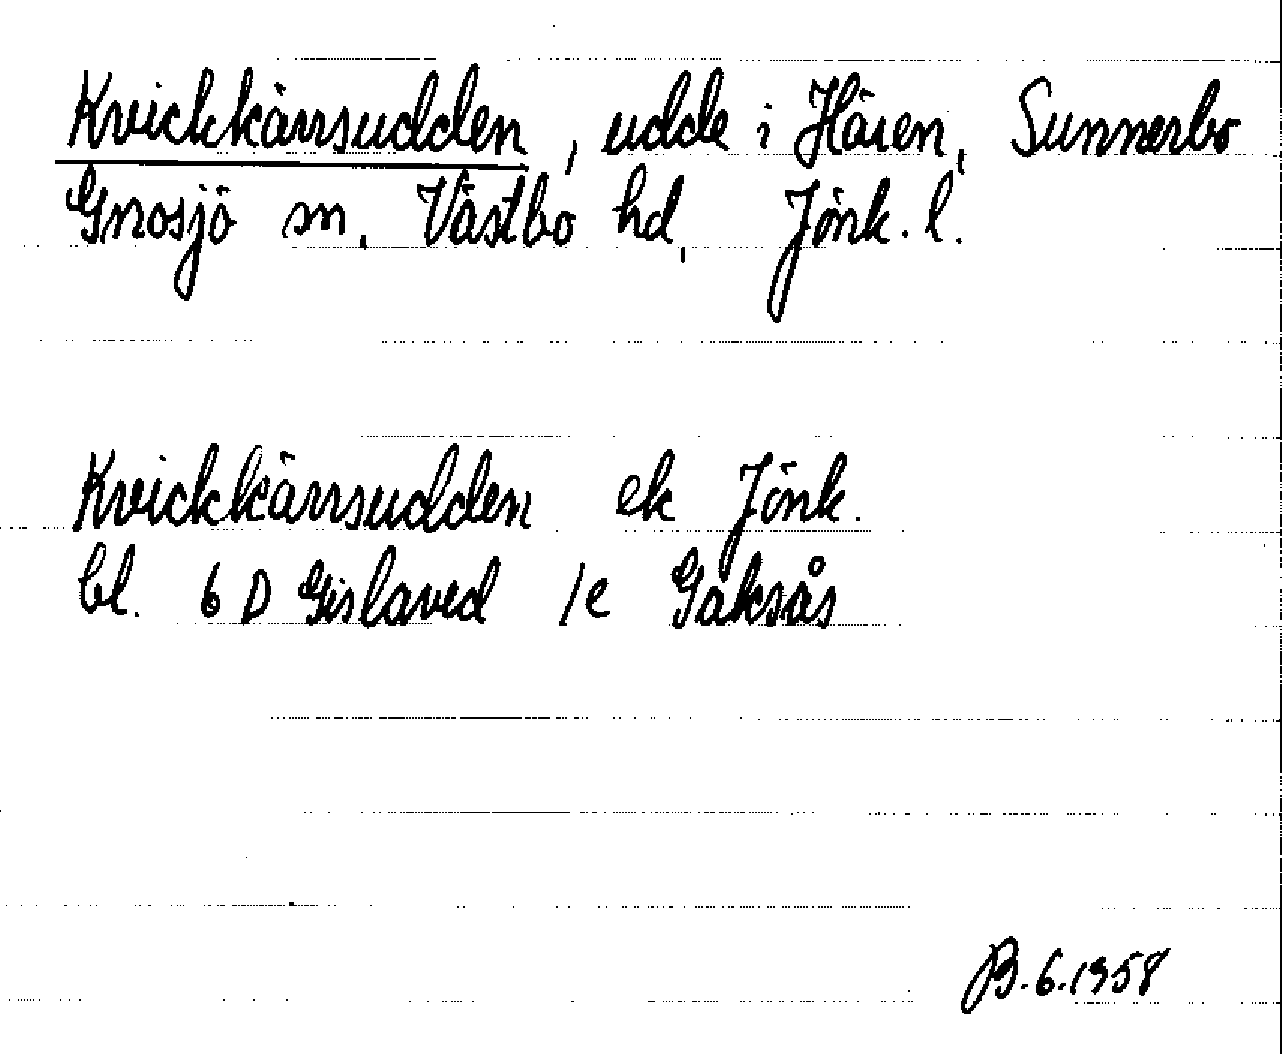 Kvickkärrsudden, udde i Hären, Sunnerbo
Gnosjö sn, Västbo hd, Jönk. l.
Kvickkärrsudden ek Jönk.
bl. 6 D Gislaved 1e Gåksås
B.6.1958